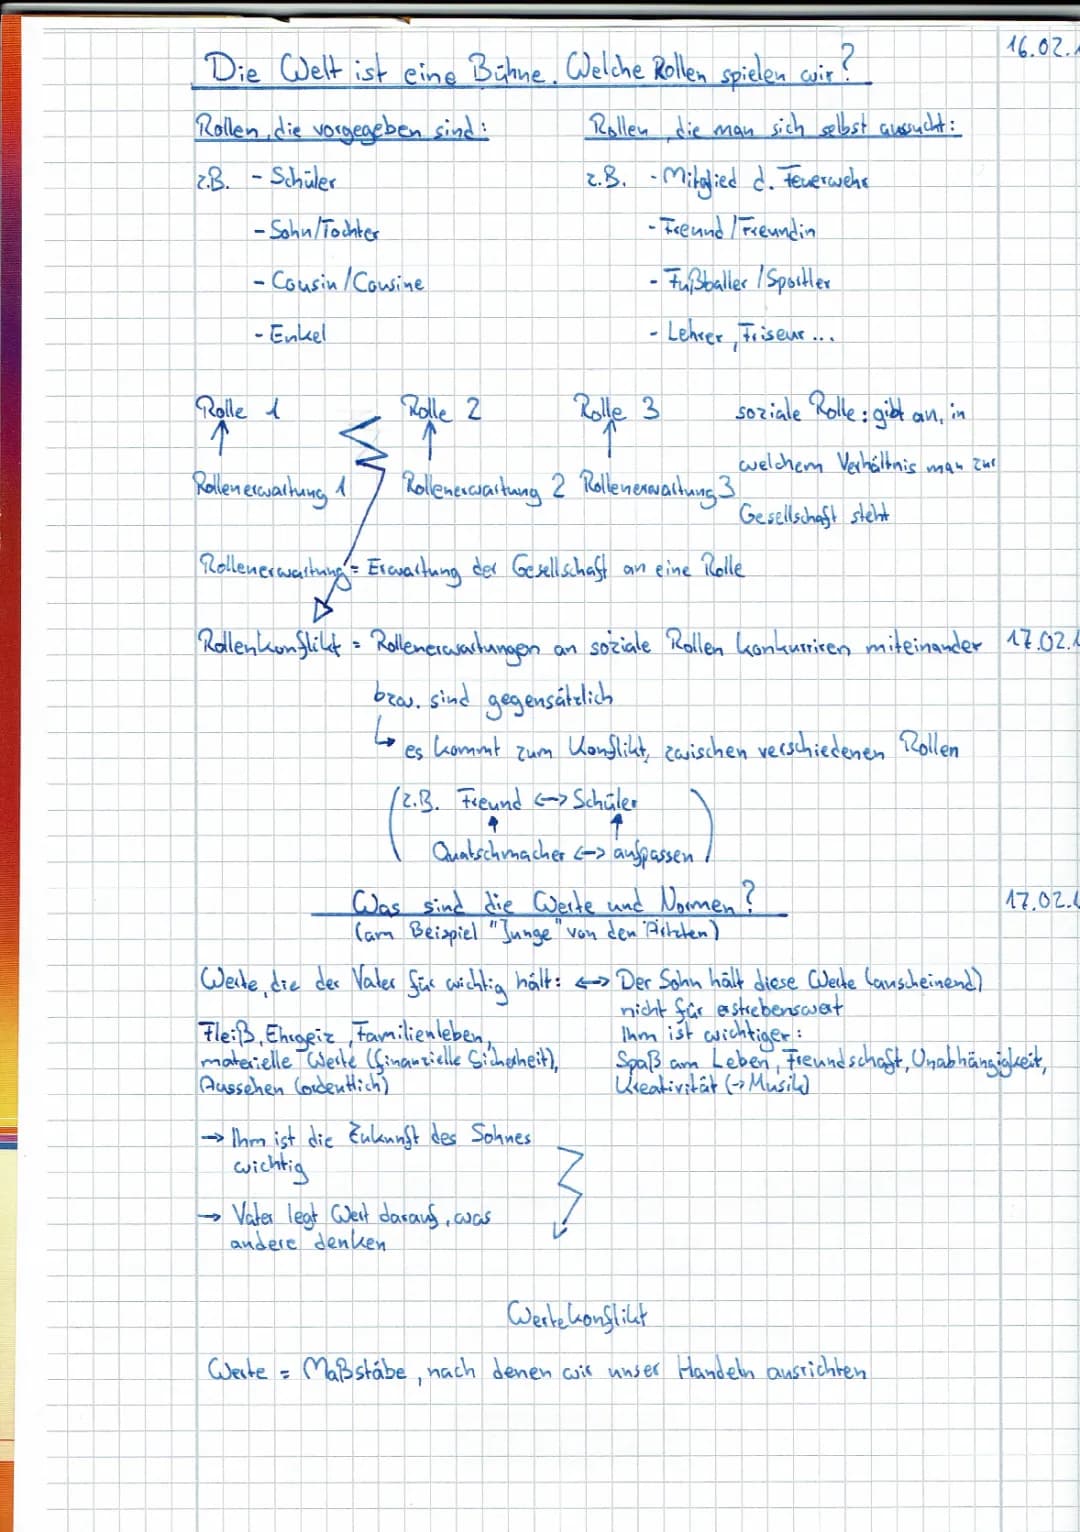 16.02.1
Die Welt ist eine Bühne. Welche Rollen spielen wir?
Rollen, die vorgegeben sind:
z.B. - Schüler
- Sohn/Tochter
- Cousin/Cousine
- Enkel
Rollen, die man sich selbst aussucht:
z.B. - Mitglied d. Feuerwehr
- Freund/Freundin
- Fußballer/Sportler
- Lehrer, Friseur...
Rolle 1 Rolle 2 Rolle 3
Rollenerwartung 1 Rollenerwartung 2 Rollenerwartung 3
soziale Rolle: gibt an, in
welchem Verhältnis man zur
Gesellschaft steht
Rollenerwartung = Erwartung der Gesellschaft an eine Rolle
Rollenkonflikt = Rollenerwartungen an soziale Rollen konkurriren miteinander 17.02.1
bzw. sind gegensätzlich
↳ es kommt zum Konflikt, zwischen verschiedenen Rollen
(z.B. Freund <-> Schüler
Quatschmacher <-> aufpassen)
Was sind die Werte und Normen? 17.02.
(am Beispiel "Junge" von den Ärtzten)
Werte, die der Vater für wichtig hält: <->
Fleiß, Ehrgeiz, Familienleben,
materielle Werte (finanzielle Sicherheit),
Aussehen (ordentlich)
→ Ihm ist die Zukunft des Sohnes
wichtig
→ Vater legt Wert darauf, was
andere denken
Der Sohn hält diese Werte (anscheinend)
nicht für erstrebenswert
Ihm ist wichtiger:
Spaß am Leben, Freundschaft, Unabhängigkeit,
Kreativität (→ Musik)
Wertekonflikt
Werte = Maßstäbe, nach denen wir unser Handeln ausrichten